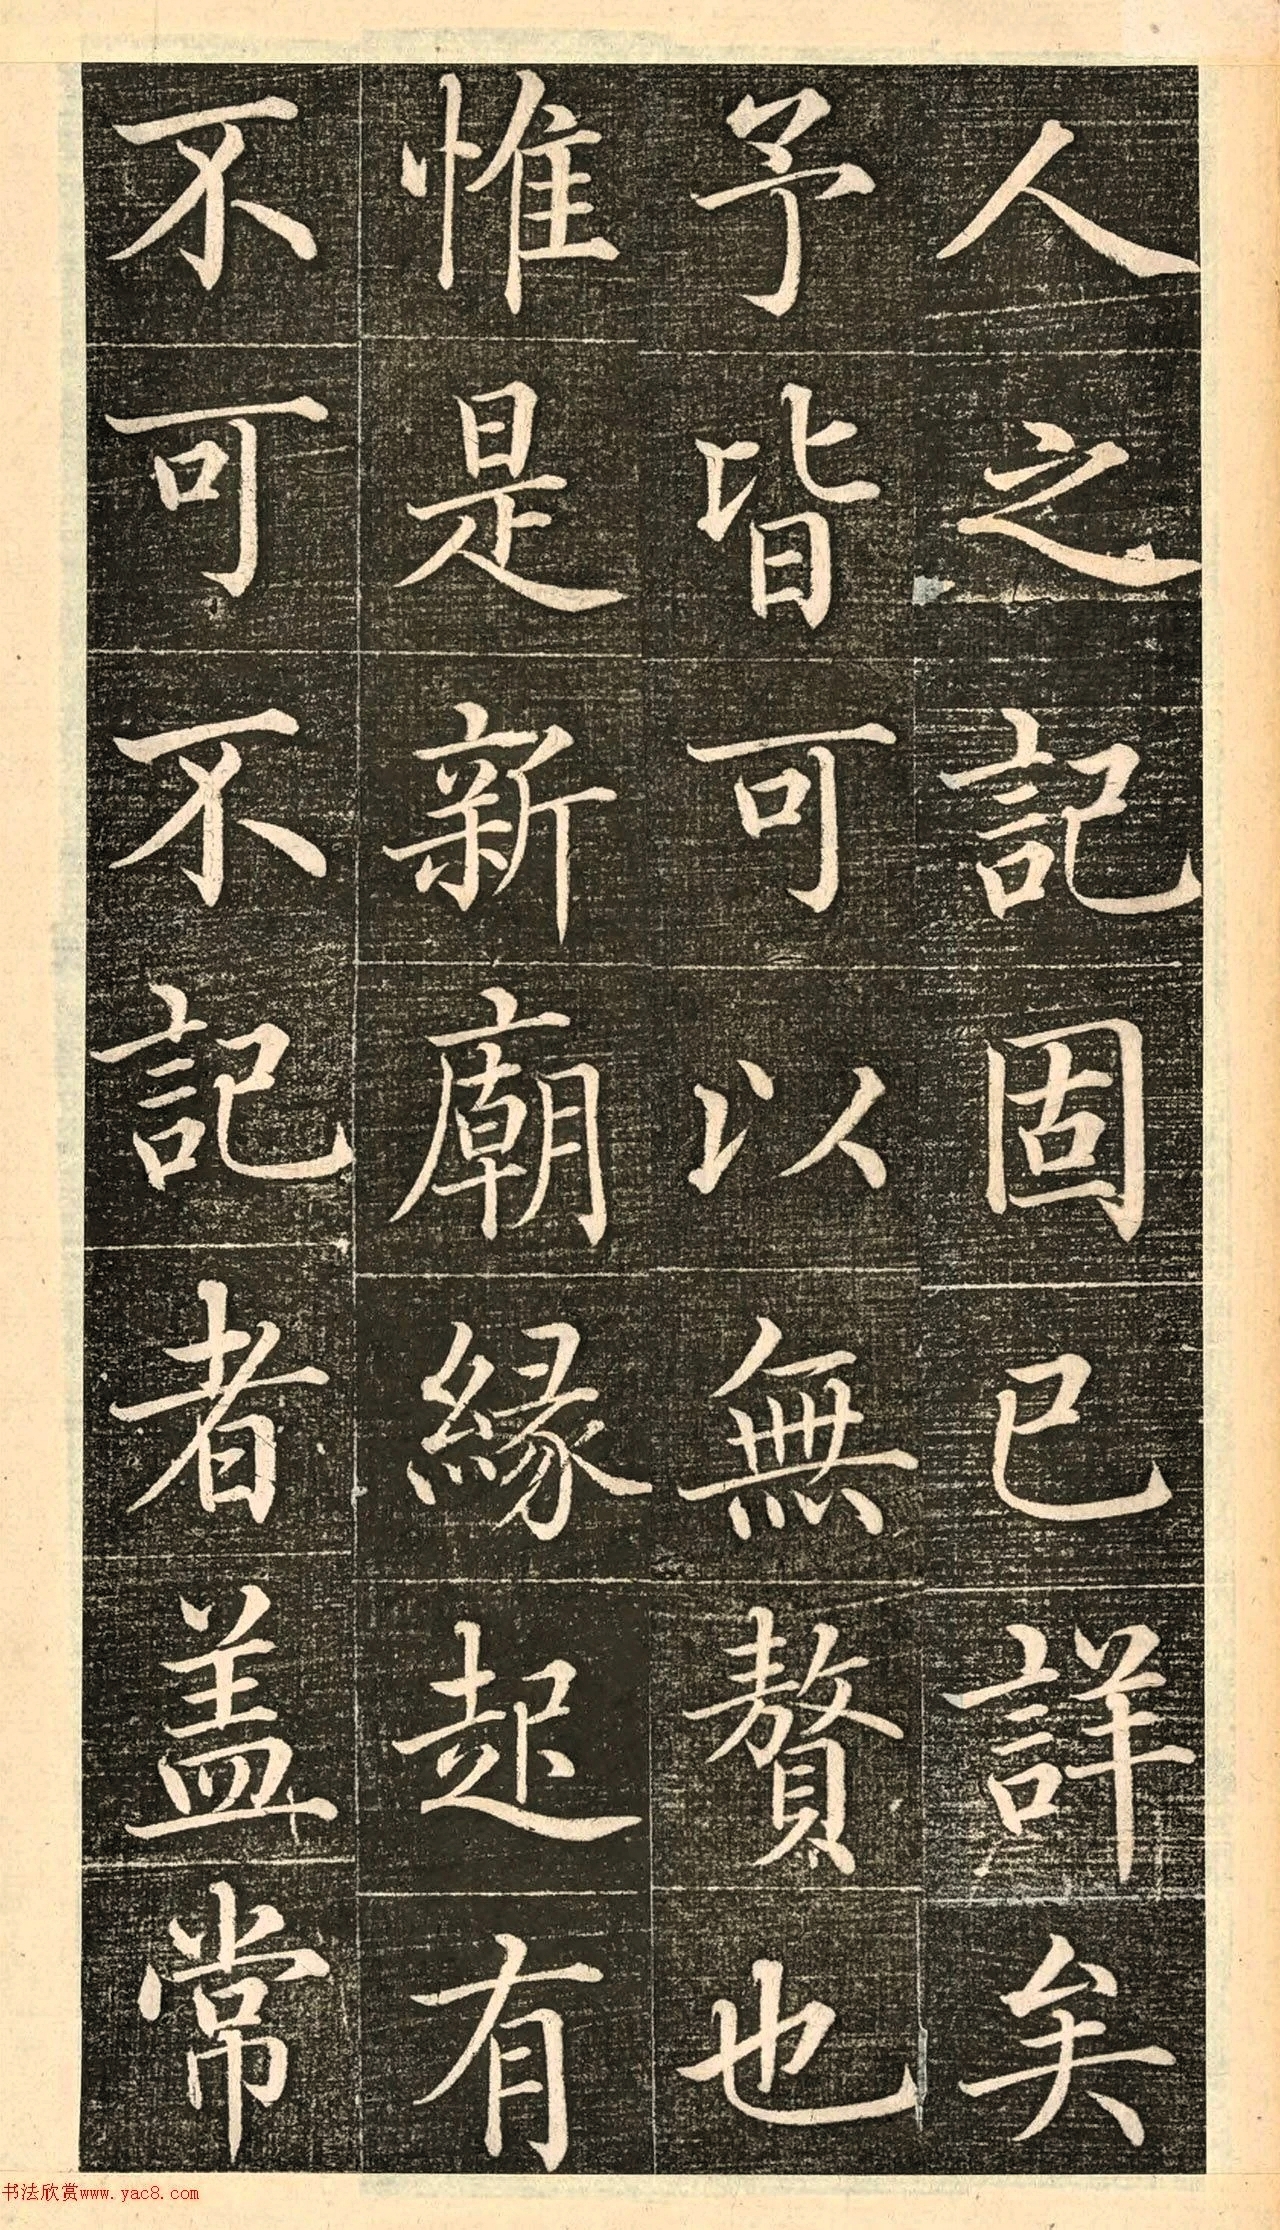 人之記固已詳矣
予皆可以無贅也
惟是新廟緣起有
不可不記者盖常
书法欣赏www.yac8.com